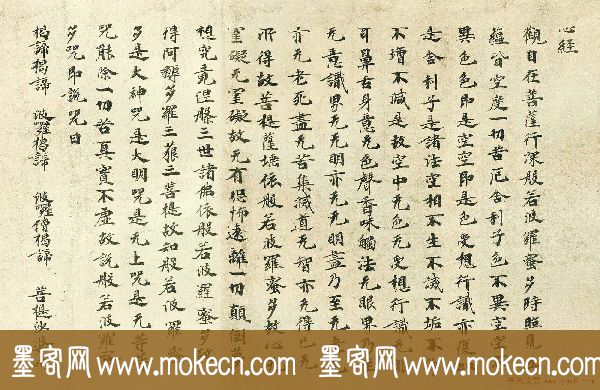 心経
觀自在菩薩行深般若波羅蜜多時照見
蘊皆空度一切苦厄舍利子色不異空空
異色色即是空空即是色受想行識亦復
是舍利子是諸法空相不生不滅不垢不
不增不減是故空中无色无受想行識无
耳鼻舌身意无色聲香味觸法无眼界乃
无意識界无无明亦无无明盡乃至无老
亦无老死盡无苦集滅道无智亦无得已无
所得故菩提薩埵依般若波羅蜜多故心
罣礙无罣礙故无有恐怖遠離一切顛倒
想究竟涅槃三世諸佛依般若波羅蜜多
得阿耨多羅三藐三菩提故知般若波羅
多是大神咒是大明咒是无上咒是无等
咒能除一切苦真實不虛故說般若波羅
多咒即說咒曰
揭諦揭諦 波羅揭諦 波羅僧揭諦 菩提
墨客网 墨客网 墨客网
www.mokecn.com www.mokecn.com www.mokecn.com